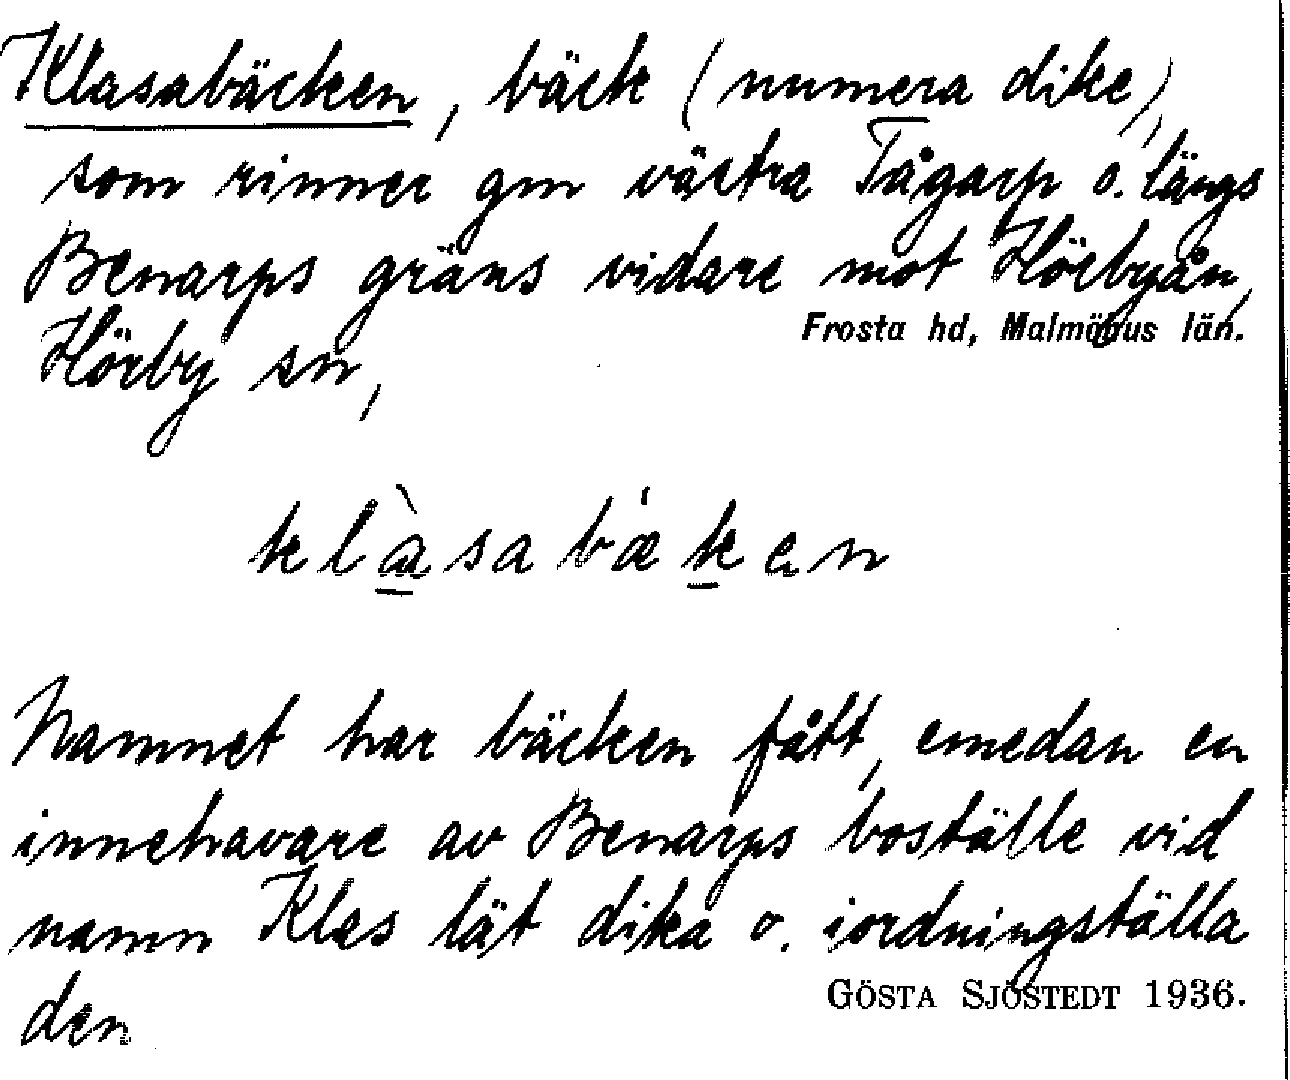 Klasabäcken, bäck (numera dike),
som rinner gm västra Tågarp o. längs
Benarps gräns vidare mot Hörbyån,
Frosta hd, Malmöhus län.
Hörby sn,
klàsabǽken
Namnet har bäcken fått, emedan en
innehavare av Benarps boställe vid
namn Klas lät dika o. iordningställa
den
GÖSTA SJÖSTEDT 1936.